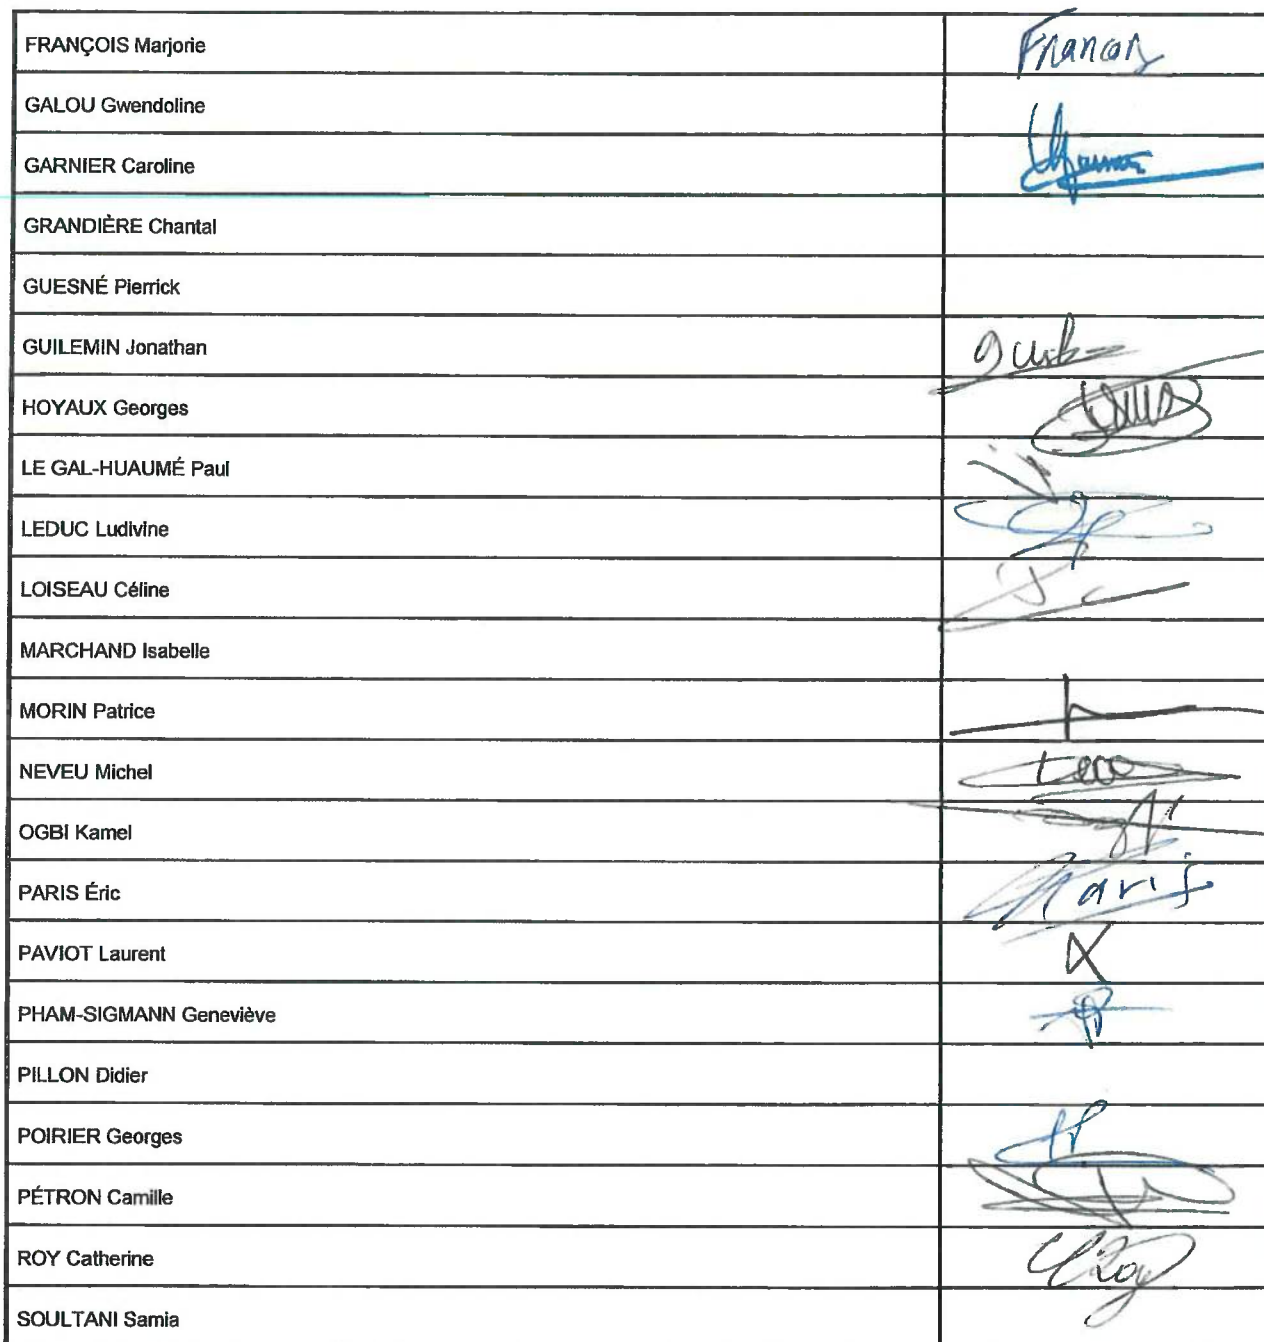 FRANÇOIS Marjorie
GALOU Gwendoline
GARNIER Caroline
GRANDIÈRE Chantal
GUESNÉ Pierrick
GUILEMIN Jonathan
HOYAUX Georges
LE GAL-HUAUMÉ Paul
LEDUC Ludivine
LOISEAU Céline
MARCHAND Isabelle
MORIN Patrice
NEVEU Michel
OGBI Kamel
PARIS Éric Paris
PAVIOT Laurent
PHAM-SIGMANN Geneviève
PILLON Didier
POIRIER Georges
PÉTRON Camille
ROY Catherine CRoy
SOULTANI Samia